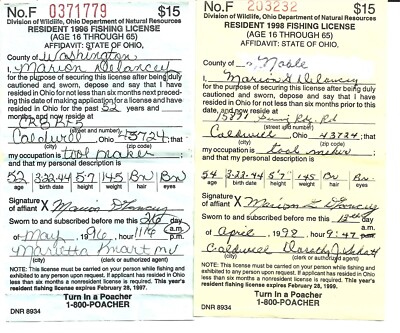 No.F 0371779 $15
Division of Wildlife, Ohio Department of Natural Resources
RESIDENT 1996 FISHING LICENSE
(AGE 16 THROUGH 65)
AFFIDAVIT: STATE OF OHIO,
County of Washington
I, Marion Delancey
for the purpose of securing this license after being duly
cautioned and sworn, depose and say that I have resided
in Ohio for not less than six months next preced-
ing this date of making application for a license and have
resided in Ohio for the past 52 years and
months, and now reside at
(street and number)
Caldwell Ohio 43724 that
(city) (zip)
my occupation is tool maker
and that my personal description is
52 3-22-44 5'7 145 Bn Bn
age birth date height weight hair eyes
Signature
of affiant Marion Delancey
Sworn to and subscribed before me this 26 day
of May 1996, hour a.m. p.m.
Marietta Kmart
(city) (clerk or authorized agent)
NOTE: This license must be carried on your person while fishing and
exhibited to any person upon request. If applicant has resided in
Ohio less than six months a nonresident license is required. This year's
resident fishing license expires February 28, 1997.
Turn In a Poacher
1-800-POACHER
DNR 8934
No.F 203232 $15
Division of Wildlife, Ohio Department of Natural Resources
RESIDENT 1998 FISHING LICENSE
(AGE 16 THROUGH 65)
AFFIDAVIT: STATE OF OHIO,
County of Noble
I, Marion G Delancey
for the purpose of securing this license after being duly
cautioned and sworn, depose and say that I have resided
in Ohio for not less than six months prior to this date
and now reside at
Rd
(street and number)
Caldwell Ohio 43724; that
(city) (zip)
my occupation is tool maker
and that my personal description is
54 3-22-44 5'7" 145 Bn Bn
age birth date height weight hair eyes
Signature
of affiant Marion Delancey
Sworn to and subscribed before me this 13th day
of April 1998, hour 9:47 a.m. p.m.
Caldwell Dorothy
(city) (clerk or authorized agent)
NOTE: This license must be carried on your person while fishing and
exhibited to any person upon request. If applicant has resided in Ohio
less than six months a nonresident license is required. This year's
resident fishing license expires February 28, 1999.
Turn In a Poacher
1-800-POACHER
DNR 8934